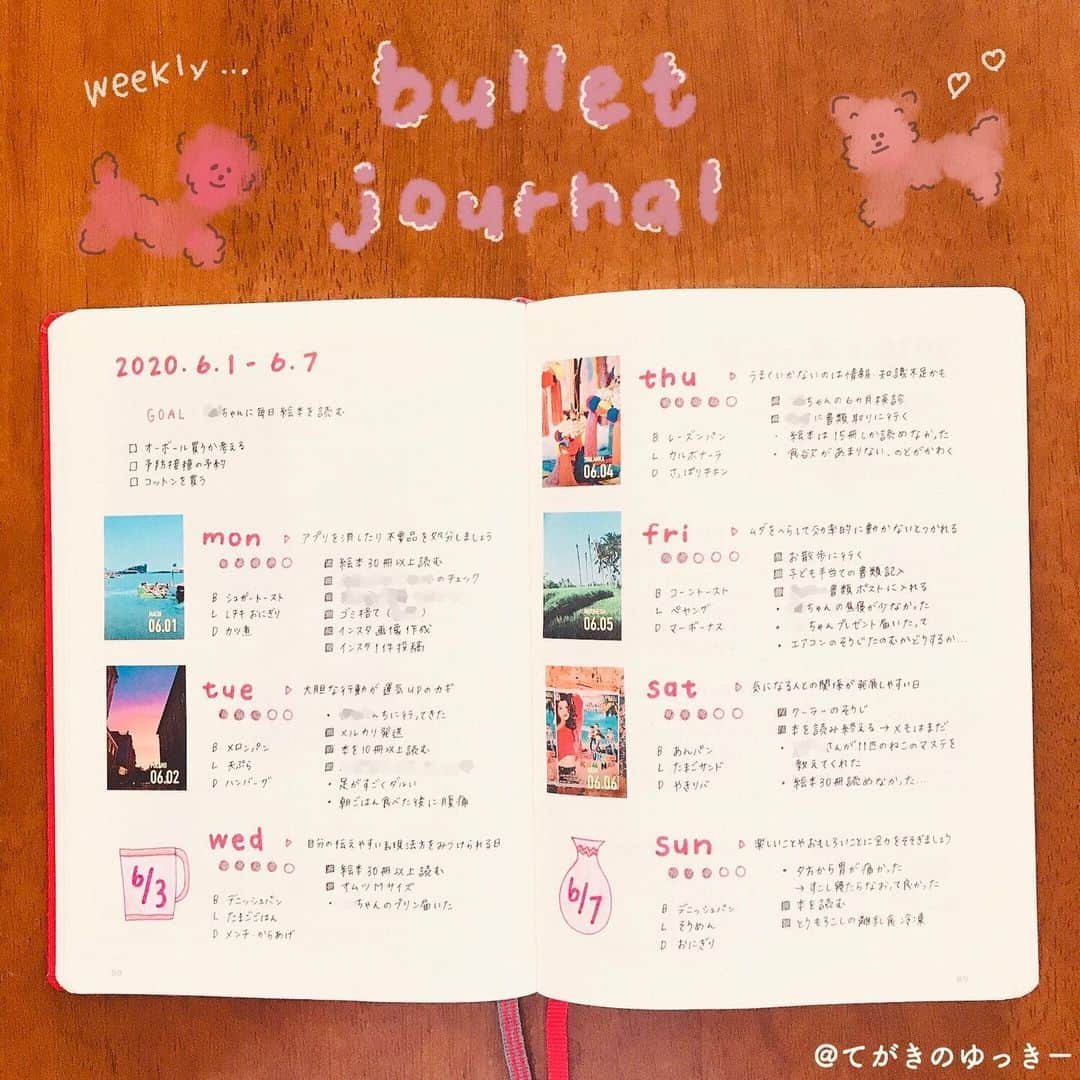 weekly...
bullet
journal
2020.6.1 - 6.7
GOAL ちゃんに毎日絵本を読む
オーボール買うか考える
予防接種の予約
コットンを買う
06.01
mon
アプリを消したり不要品を処分しましょう
B シュガートースト
L ツナキおにぎり
D カツ煮
絵本30冊以上読む
のチェック
ゴミ捨て( )
インスタ画像作成
インスタ1件投稿
06.02
tue
大胆な行動が運気UPのカギ
B メロンパン
L 天ぷら
D ハンバーグ
・ んちに行ってきた
メルカリ発送
本を10冊以上読む
・足がすごくダルい
・朝ごはん食べた後に腹痛
6/3
wed
自分の伝えやすい表現法方をみつけられる日
B デニッシュパン
L たまごごはん
D メンチ・からあげ
絵本30冊以上読む
オムツMサイズ
・ ちゃんのプリン届いた
06.04
thu
うまくいかないのは情報・知識不足かも
B レーズンパン
L カルボナーラ
D さっぱりチキン
ちゃんの6カ月検診
に書類取りに行く
・絵本は15冊しか読めなかった
・食欲があまりない、のどがかわく
06.05
fri
ムダをへらして効率的に動かないとつかれる
B コーントースト
L ペヤング
D マーボーナス
お散歩に行く
子ども手当ての書類記入
書類ポストに入れる
・ ちゃんの昼寝が少なかった
・ ちゃんプレゼント届いたって
・エアコンのそうじたのむかどうするか…
06.06
sat
気になる人との関係が発展しやすい日
B あんパン
L たまごサンド
D やきソバ
クーラーのそうじ
本を読み終える→メモはまだ
・ さんが11匹のねこのマステを
教えてくれた
・絵本30冊読めなかった…
6/7
sun
楽しいことやおもしろいことに全力をそそぎましょう
B デニッシュパン
L そうめん
D おにぎり
・夕方から胃が痛かった
→すこし寝たらなおって良かった
本を読む
とうもろこしの離乳食冷凍
@てがきのゆっきー